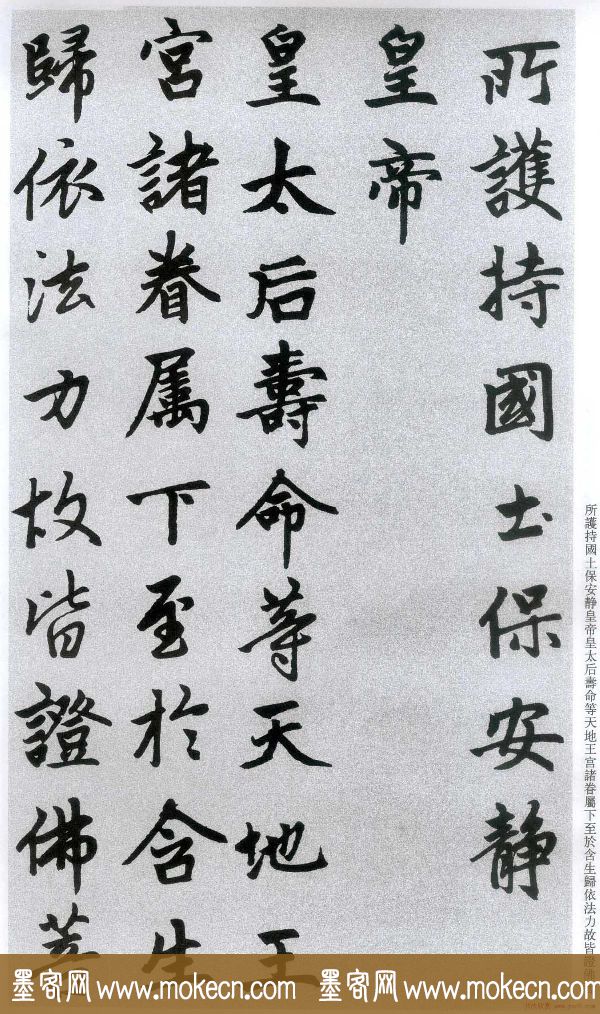 所護持國土保安静
皇帝
皇太后壽命等天地王
宮諸眷属下至於含生
歸依法力故皆證佛菩
所護持國土保安静皇帝皇太后壽命等天地王宫諸眷屬下至於含生歸依法力故皆證佛
墨客网 www.mokecn.com 墨客网 www.mokecn.com